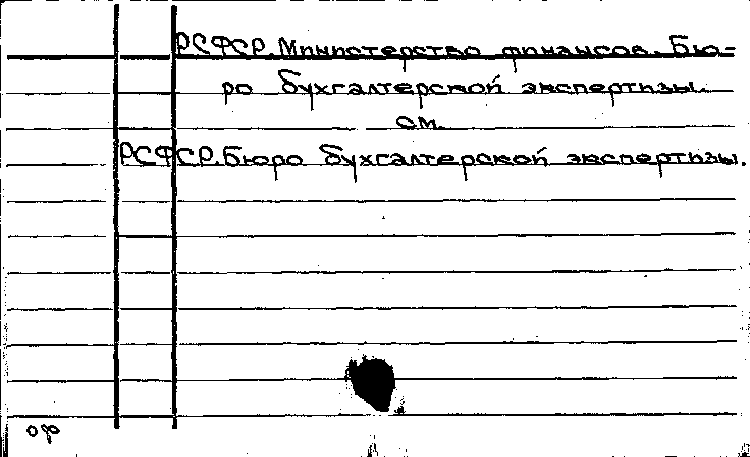 РСФСР. Министерство финансов. Бю-
ро бухгалтерской экспертизы.
см.
РСФСР. Бюро бухгалтерской экспертизы.
оф